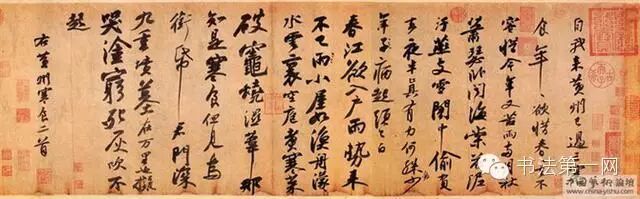 自我來黃州已過三寒
食年年欲惜春春去不
容惜今年又苦雨兩月秋
蕭瑟卧聞海棠花泥
汙燕支雪闇中偷負
去夜半真有力何殊病少
年子病起頭已白
春江欲入戶雨勢來
不已雨小屋如漁舟濛濛
水雲裏空庖煮寒菜
破竈燒濕葦那
知是寒食但見烏
銜帋君門深
九重墳墓在万里也擬
哭塗窮死灰吹不
起
右黃州寒食二首
书法第一网
中国艺术论坛
china-yishu.com